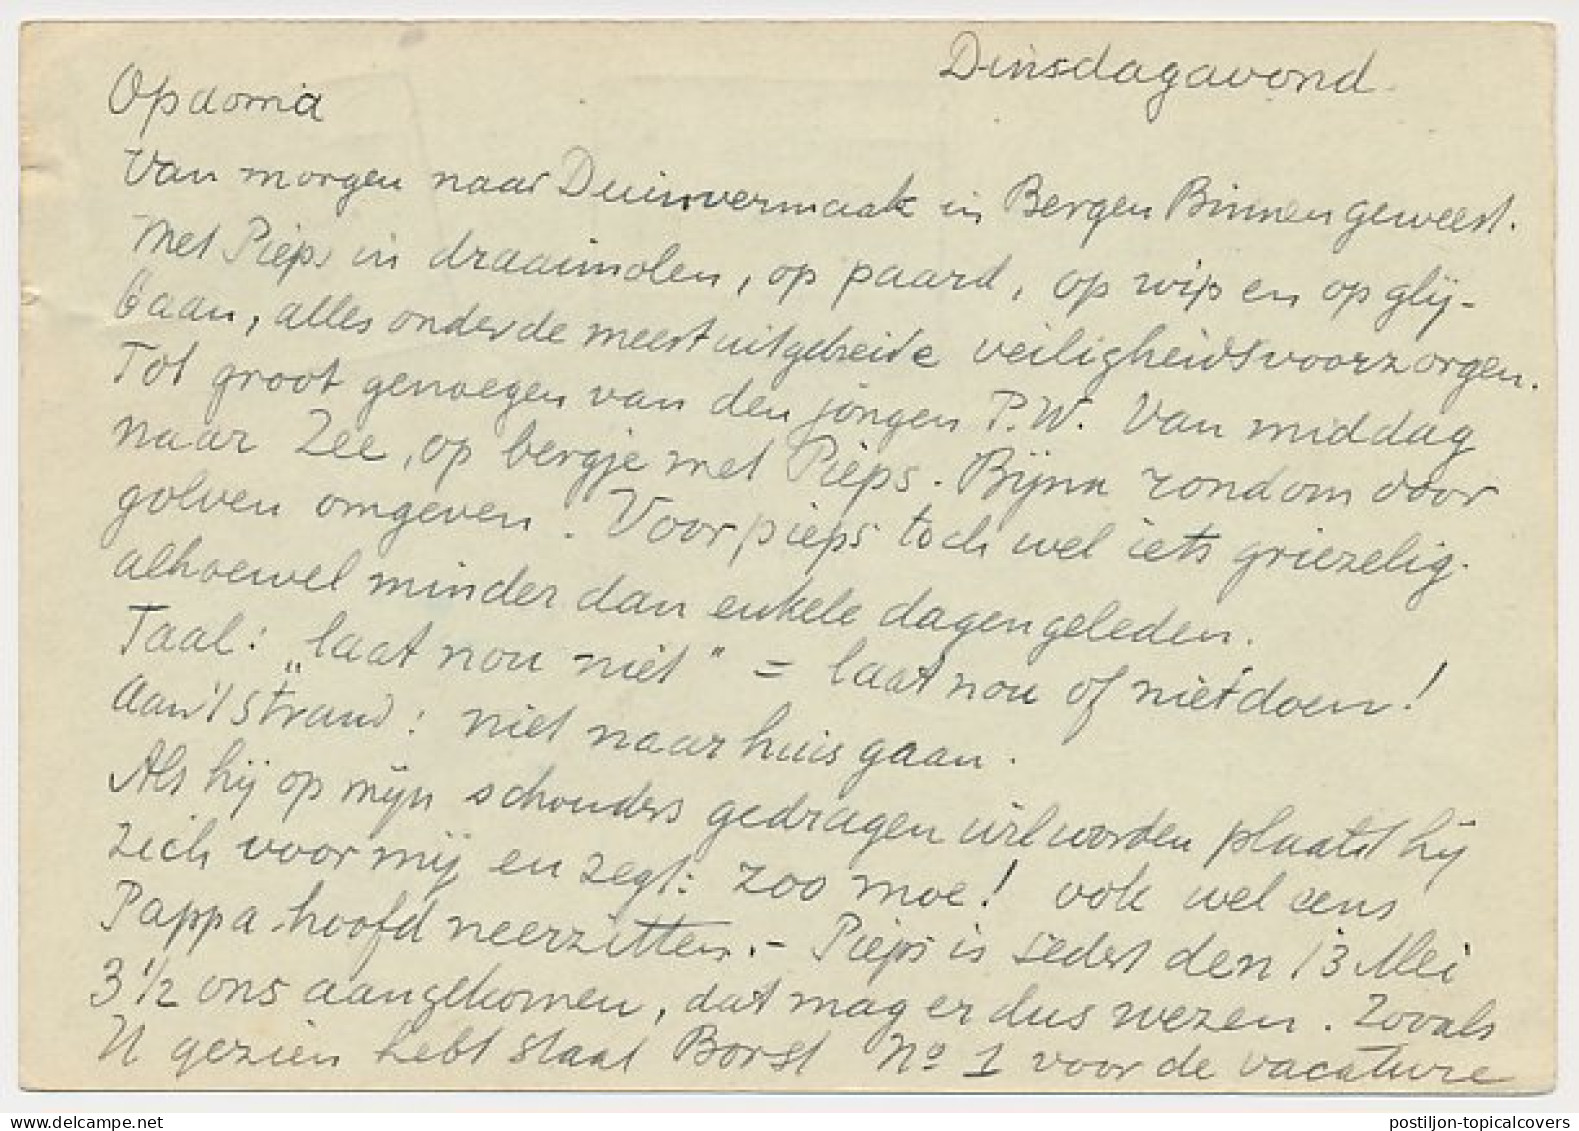 Dinsdagavond.
Opdoma
Van morgen naar Duinvermaak in Bergen Binnen geweest.
Met Pieps in draaimolen, op paard, op wip en op glij-
baan, alles onder de meest uitgebreide veiligheidsvoorzorgen.
Tot groot genoegen van den jongen P.W. Van middag
naar Zee, op bergje met Pieps. Bijna rondom door
golven omgeven. Voor pieps toch wel iets griezelig.
alhoewel minder dan enkele dagen geleden.
Taal: „laat nou niet" = laat nou of niet doen!
aan 't strand: niet naar huis gaan.
Als hij op mijn schouders gedragen wil worden plaatst hij
zich voor mij en zegt: zoo moe! ook wel eens
Pappa-hoofd neerzitten. - Pieps is sedert den 13 Mei
3 1/2 ons aangekomen, dat mag er dus wezen. Zooals
U gezien hebt staat Borst No 1 voor de vacature
postiljon-topicalcovers